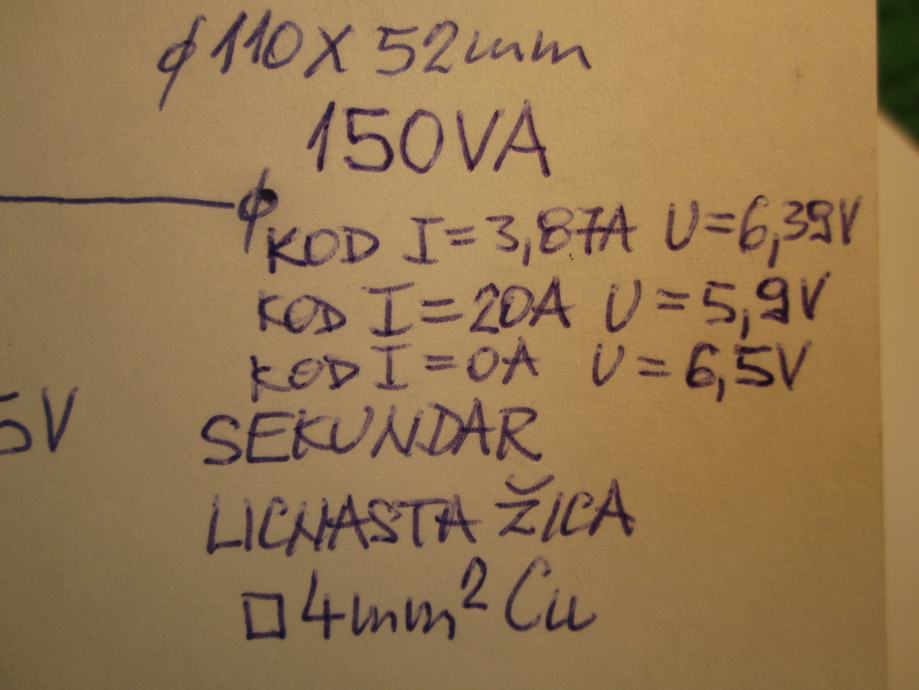 ϕ110X52mm
150VA
KOD I=3,87A U=6,39V
KOD I=20A U=5,9V
KOD I=0A U=6,5V
5V
SEKUNDAR
LICNASTA ŽICA
□4mm² Cu